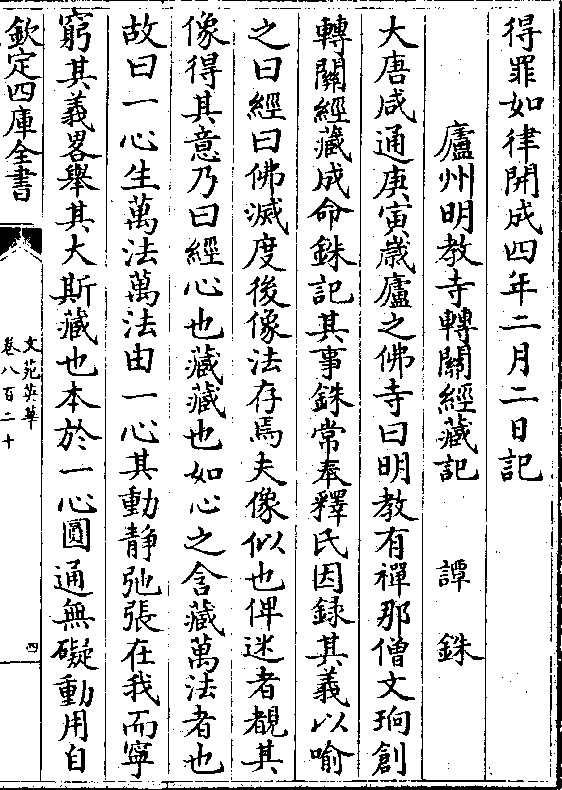 得罪如律開成四年二月二日記
廬州明教寺轉關經藏記　譚銖
大唐咸通庚寅歲廬之佛寺曰明教有禪那僧文珦創
轉關經藏成命銖記其事銖常奉釋氏因録其義以喻
之曰經曰佛滅度後像法存焉夫像似也俾迷者覩其
像得其意乃曰經心也藏藏也如心之含藏萬法者也
故曰一心生萬法萬法由一心其動静弛張在我而寧
窮其義畧舉其大斯藏也本於一心圓通無礙動用自
欽定四庫全書
文苑英華
卷八百二十
四